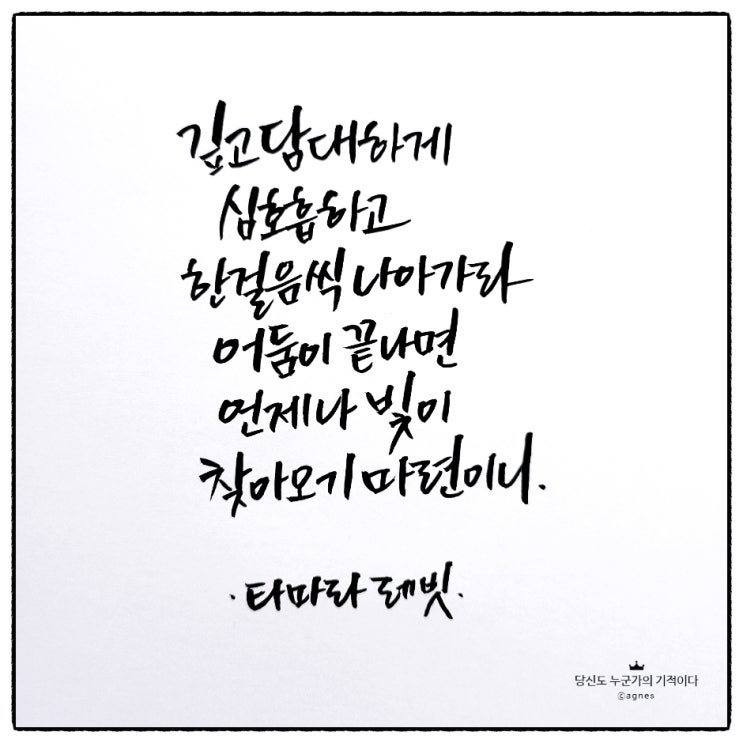 깊고 담대하게
심호흡하고
한걸음씩 나아가라
어둠이 끝나면
언제나 빛이
찾아오기 마련이니.
· 타마라 레빗 ·
당신도 누군가의 기적이다
ⓒagnes